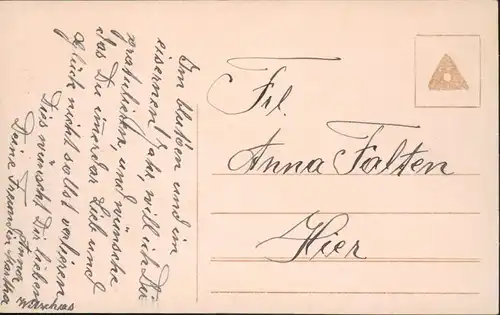 Im blut'en und im
eisernen Jahr, will ich Dir
gratulieren, und wünsche
das Du immerdar Lieb und
Glück nicht sollst verlieren
Dies wünscht Dir lieben
Anna
Deine Freundin Martha
Frl.
Anna Falten
Hier